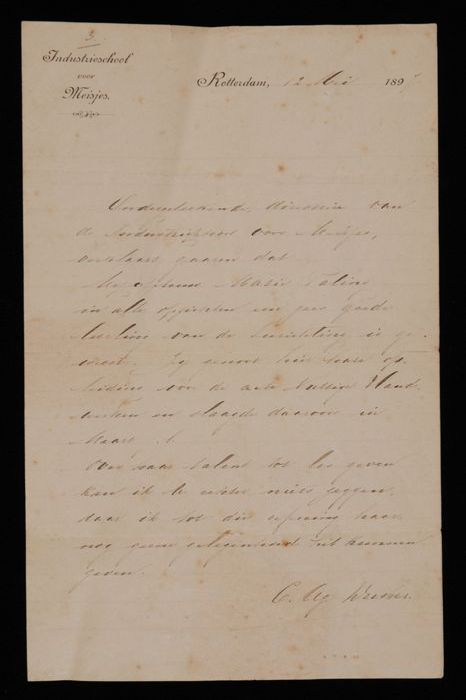 3.
Industrieschool
voor
Meisjes.
Rotterdam, 12 Mei 189
Ondergeteekende, directrice van
de Industrieschool voor Meisjes,
verklaart gaarne dat
Mejufvrouw Marie
in alle opzichten een zeer goede
leerlinge van de inrichting is ge-
weest. Zij genoot hier hare op-
leiding voor de acte Nuttige Hand-
werken en slaagde daarvoor in
Maart
Over haar talent tot les geven
kan ik U echter niets zeggen,
daar ik tot die oefening haar
nog geene gelegenheid heb kunnen
geven.